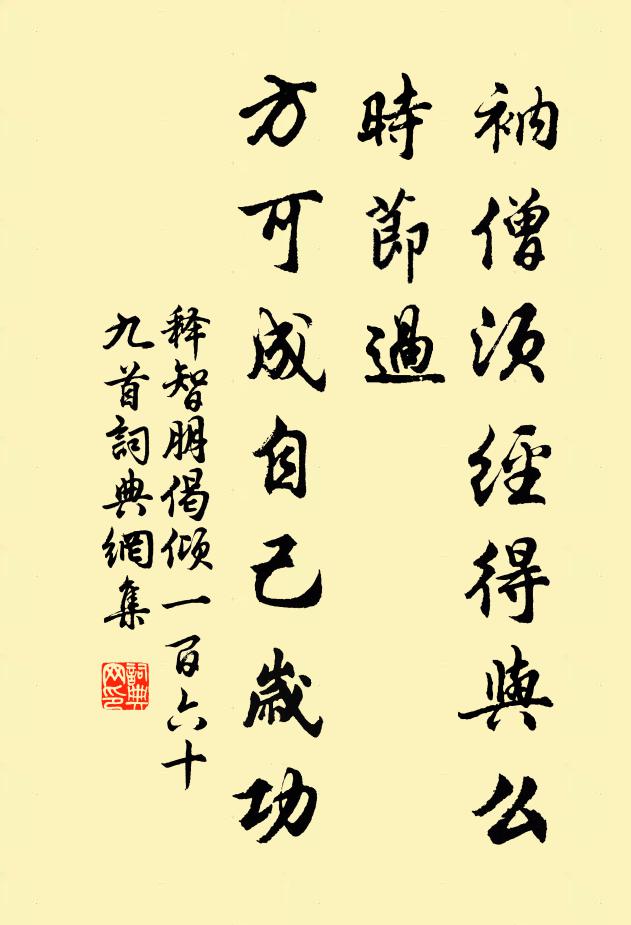 衲僧須經得與么
時節過
方可成自己歲功
释智朋偈傾一百六十
九首詞典網集
詞典
网印